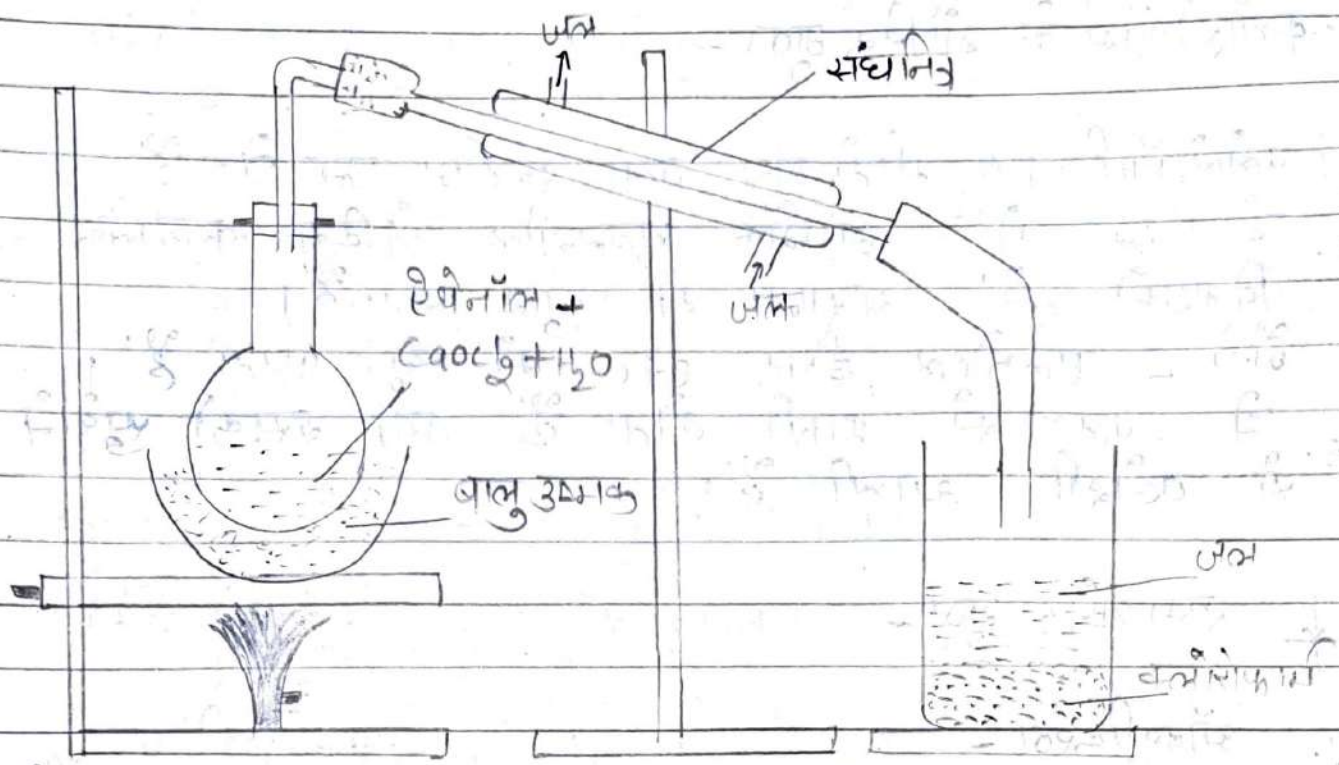 जल
संघनित्र
जल
ऐथेनॉल +
CaOCl2 + H2O
बालु उष्मक
जल
क्लोरोफार्म